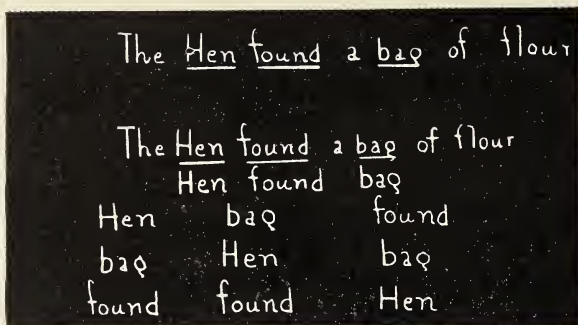 The Hen found a bag of flour
The Hen found a bag of flour
Hen found bag
Hen bag found
bag Hen bag
found found Hen